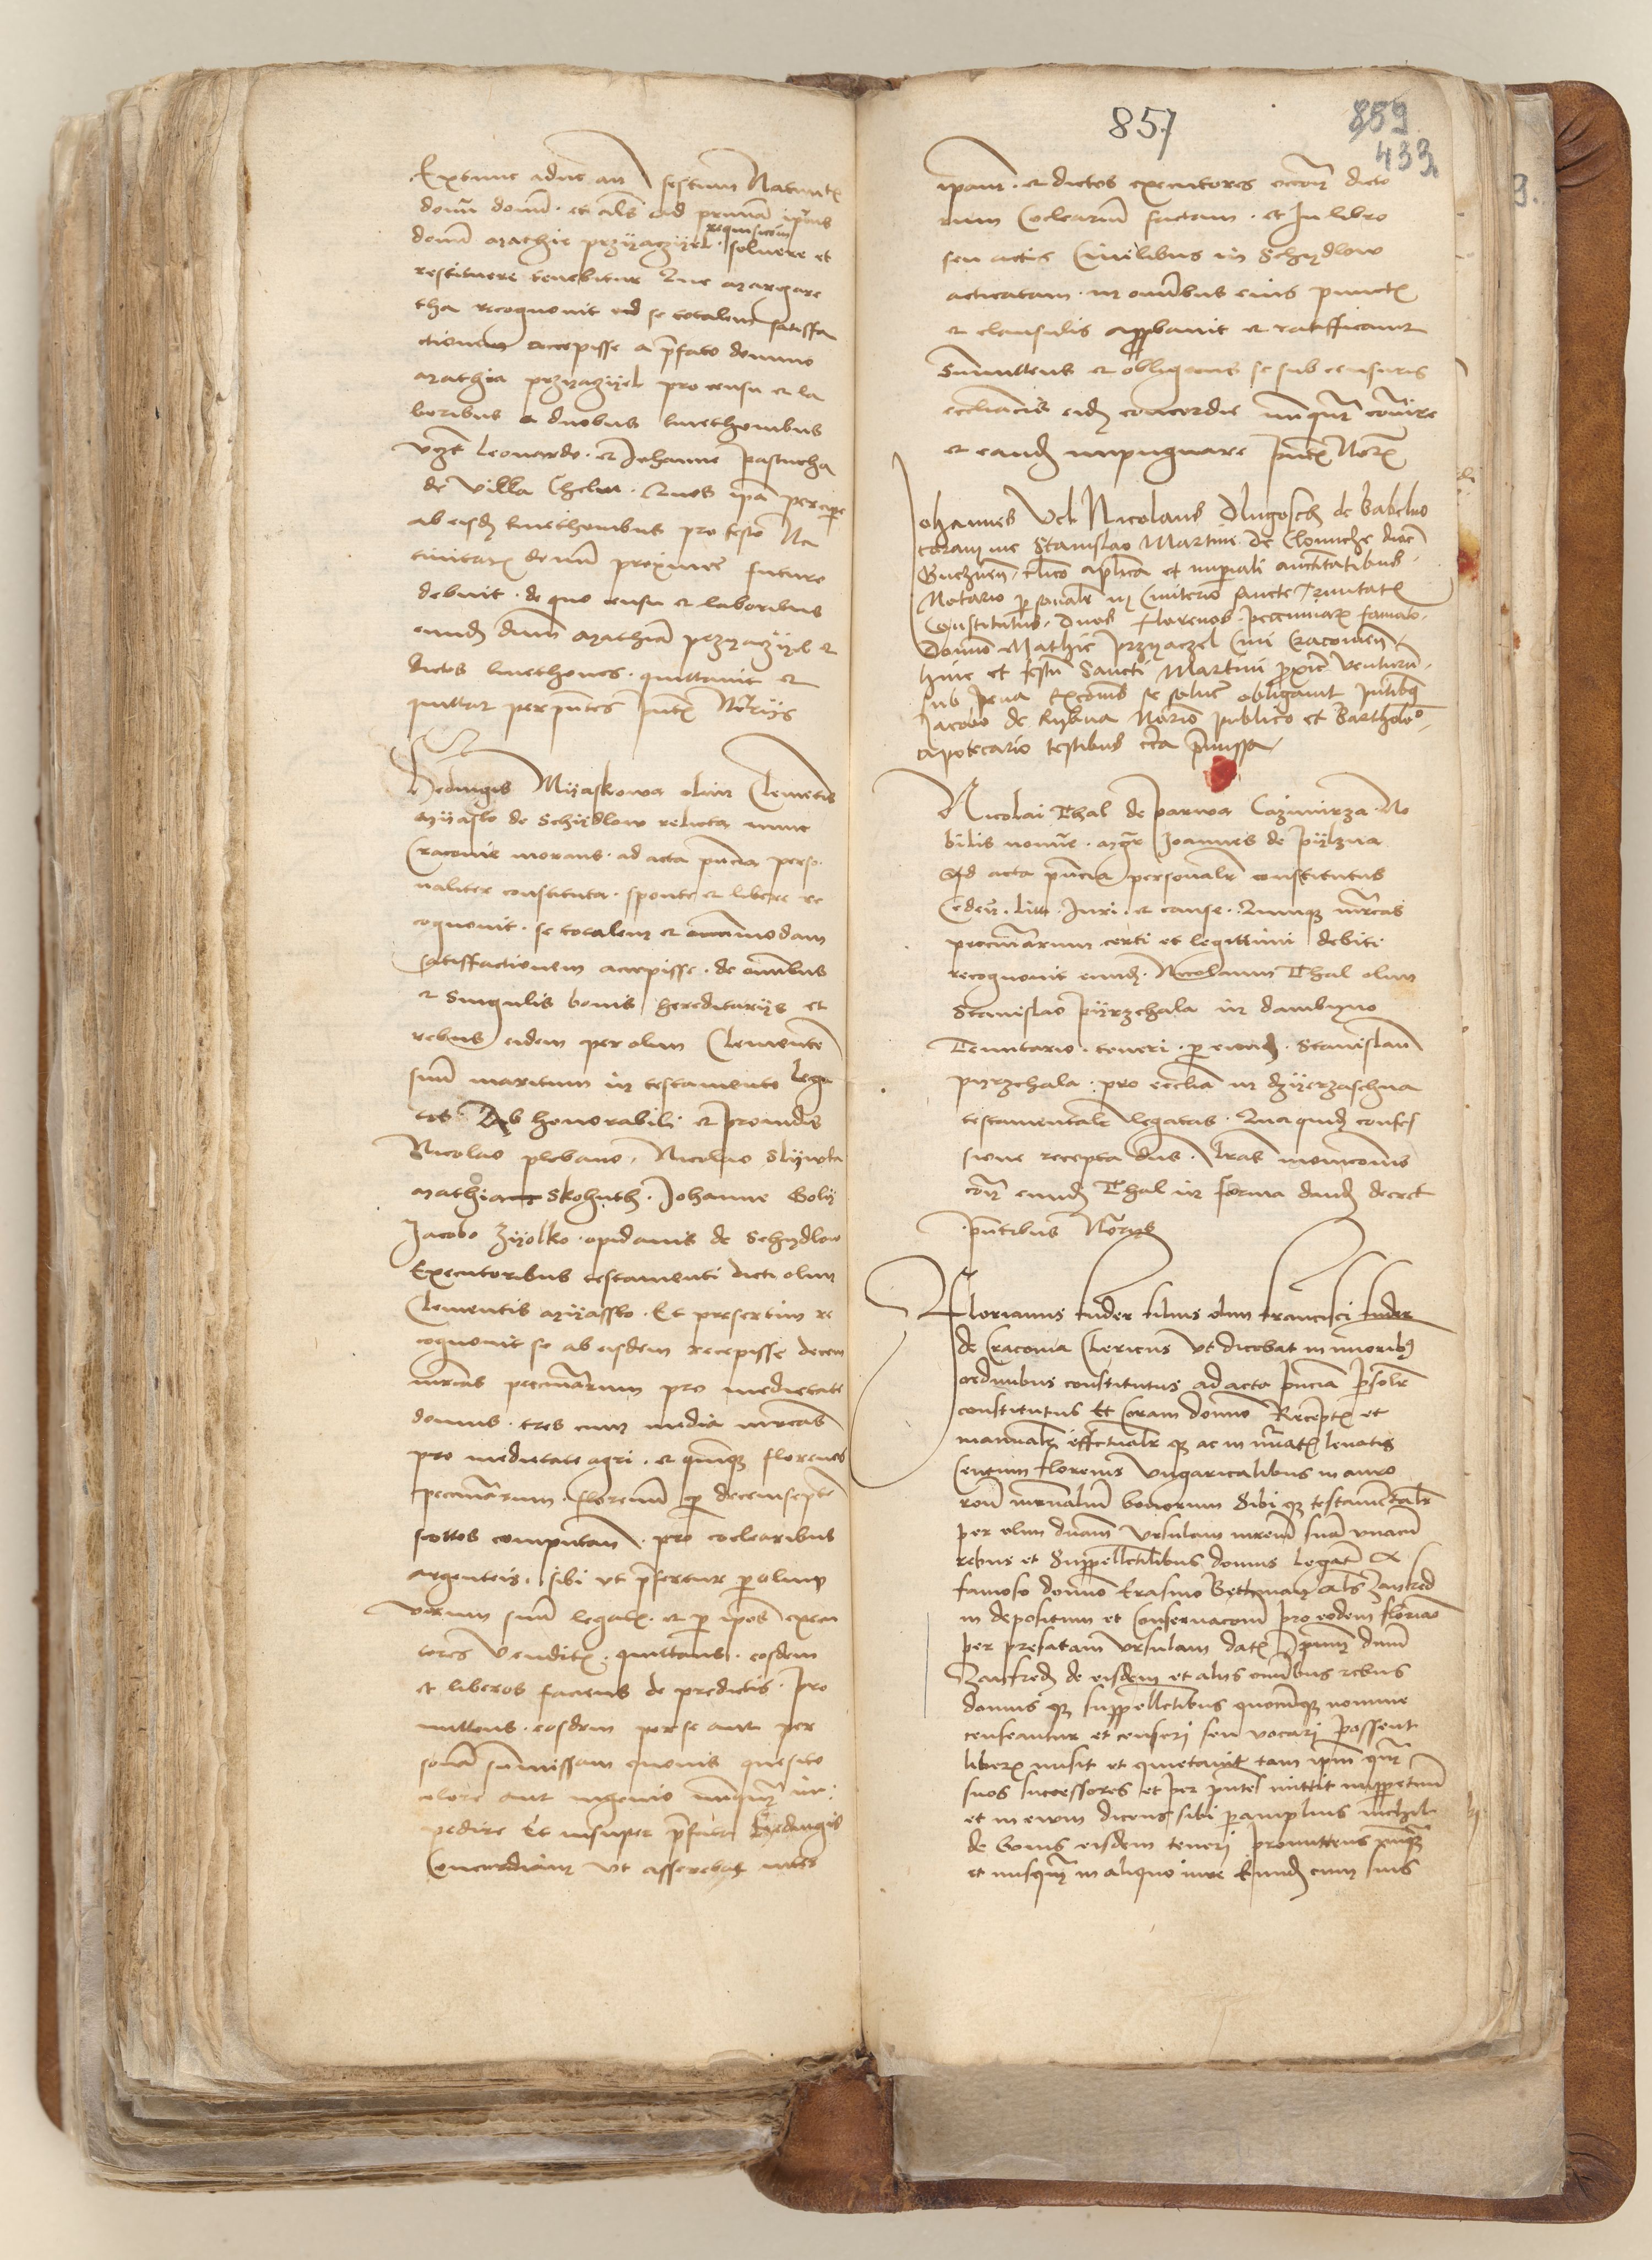 Extunc adhuc an festum Natiuitatis
domini domino et alias ad primam ipsius
requisicionem
domini Mathie przyaczyel soluere et
restituere tenebitur Que Margare
tha recognouit ad se totalem satisffa
ctionem accepisse a prefato domino
Mathia przyaczyel pro censu et la
boribus a duobus kmethonibus
videlicet Leonardo et Johanne Pastucha
de villa Chelm Quos ipsa percipere
ab eisdem kmethonibus pro festo Na
tiuitatis domini proxime futuro
debuit de quo censu et laboribus
eundem dominum Mathiam przyaczyel et
dictos kmethones quittauit et
quittat per presentes presentibus Notariis
Hedwigis Myaskowa olim Clementis
Myasko de Schydlow relicta nunc
Cracouie morans ad acta presencia perso
naliter constituta sponte et libere re
cognouit se totalem et omnimodam
satisffactionem accepisse de omnibus
et singulis bonis hereditariis et
rebus eidem per olim Clementem
suum maritum in testamento lega
tis Ab honorabili et prouidis
Nicolao plebano Nicolao Slywka
Mathia Skohuth Johanne Goly
Jacobo Zyolko opidanis de Schydlow
Executoribus testamenti dicti olim
Clementis Myassko Et presertim re
cognouit se ab eisdem recepisse decem
marcas pecuniarum pro medietate
domus tres cum media marcas
pro medietate agri et quinque florenos
pecuniarum florenum per decemseptem
scottos computando pro coclearibus
argenteis sibi ut prefertur per olim
virum suum legatis et per ipsos execu
tores venditis quittans eosdem
et liberos faciens de predictis Pro
mittens eosdem per se aut per
sonam summissam quouis quesito
colore aut ingenio nunquam im
pedire Et insuper prefata Hedwigis
Concordiam ut asserebat inter
857
859
433
ipsam et dictos executores occasione dicto
rum Coclearium factam et In libro
seu actis Ciuilibus in Schydlow
acticatam in omnibus eius punctis
et clausulis approbauit et ratifficauit
Summittens et obligans se sub censuris
ecclesiasticis eidem concordie nunquam contrauenire
et eandem impugnare presentibus Notariis
Johannes Vel Nicolaus Dlugosch de Babelno
coram me Stanislao Martini de Clomicze diocesis
Gneznensis clerico apostolica et imperiali auctoritatibus
Notario personaliter in Cimiterio sancte Trinitatis
Constitutus duos florenos pecuniarum famato
Domino Mathie Przyaczel Ciui Cracouiensi
hinc et festum Sancti Martini proxime venturum
sub pena Excommunicationis se soluere obligauit presentibus
Jacobo de Rybna Notario publico et Bartholomeo
apotecario testibus circa premissa
Nicolai Thal de parwa Cazimirza No
bilis nomine Magister Joannes de Pylzna
Ad acta presencia personaliter constitutus
Cedendo liti Juri et cause Quinque marcas
pecuniarum certi et legittimi debiti
recognouit eundem Nicolaum Thal olim
Stanislao Pyrzchala in dambyno
Tenutario teneri per eundem Stanislaum
Pyrzchala pro ecclesia in dzyerzaschna
testamentaliter legatas Quaquidem confes
sione recepta dominus literas monicionis
contra eundem Thal in forma dandas decreuit
presentibus Notariis
Florianus Luder filius olim francisci Luder
de Cracouia Clericus ut dicebat in minoribus
ordinibus constitutus ad acta presencia personaliter
constitutus Et Coram domino Receptis et
manualiter effectualiter que ac in numeratis leuatis
Centum florenis Vngaricalibus in auro
racione maternalium bonorum sibi que testamentaliter
per olim dominam Vrsulam matrem suam vnacum
rebus et Suppellectilibus domus legatis ex
famoso domino Erasmo Bethman alias Zaifred
in depositum et Conseruacionem pro eodem floriano
per prefatam vrsulam datis Ipsum dominum
Zaifredum de eisdem et aliis omnibus rebus
domus que suppellectilibus quocunque nomine
censeantur et censeri seu vocari possent
liberum misit et quietauit tam ipsum quam
suos successores et per presentes mittit in perpetuum
et in euum dicens sibi peramplius nichil
de bonis eisdem teneri promittens nunquam
et nusquam in aliquo iure Eundem cum suis